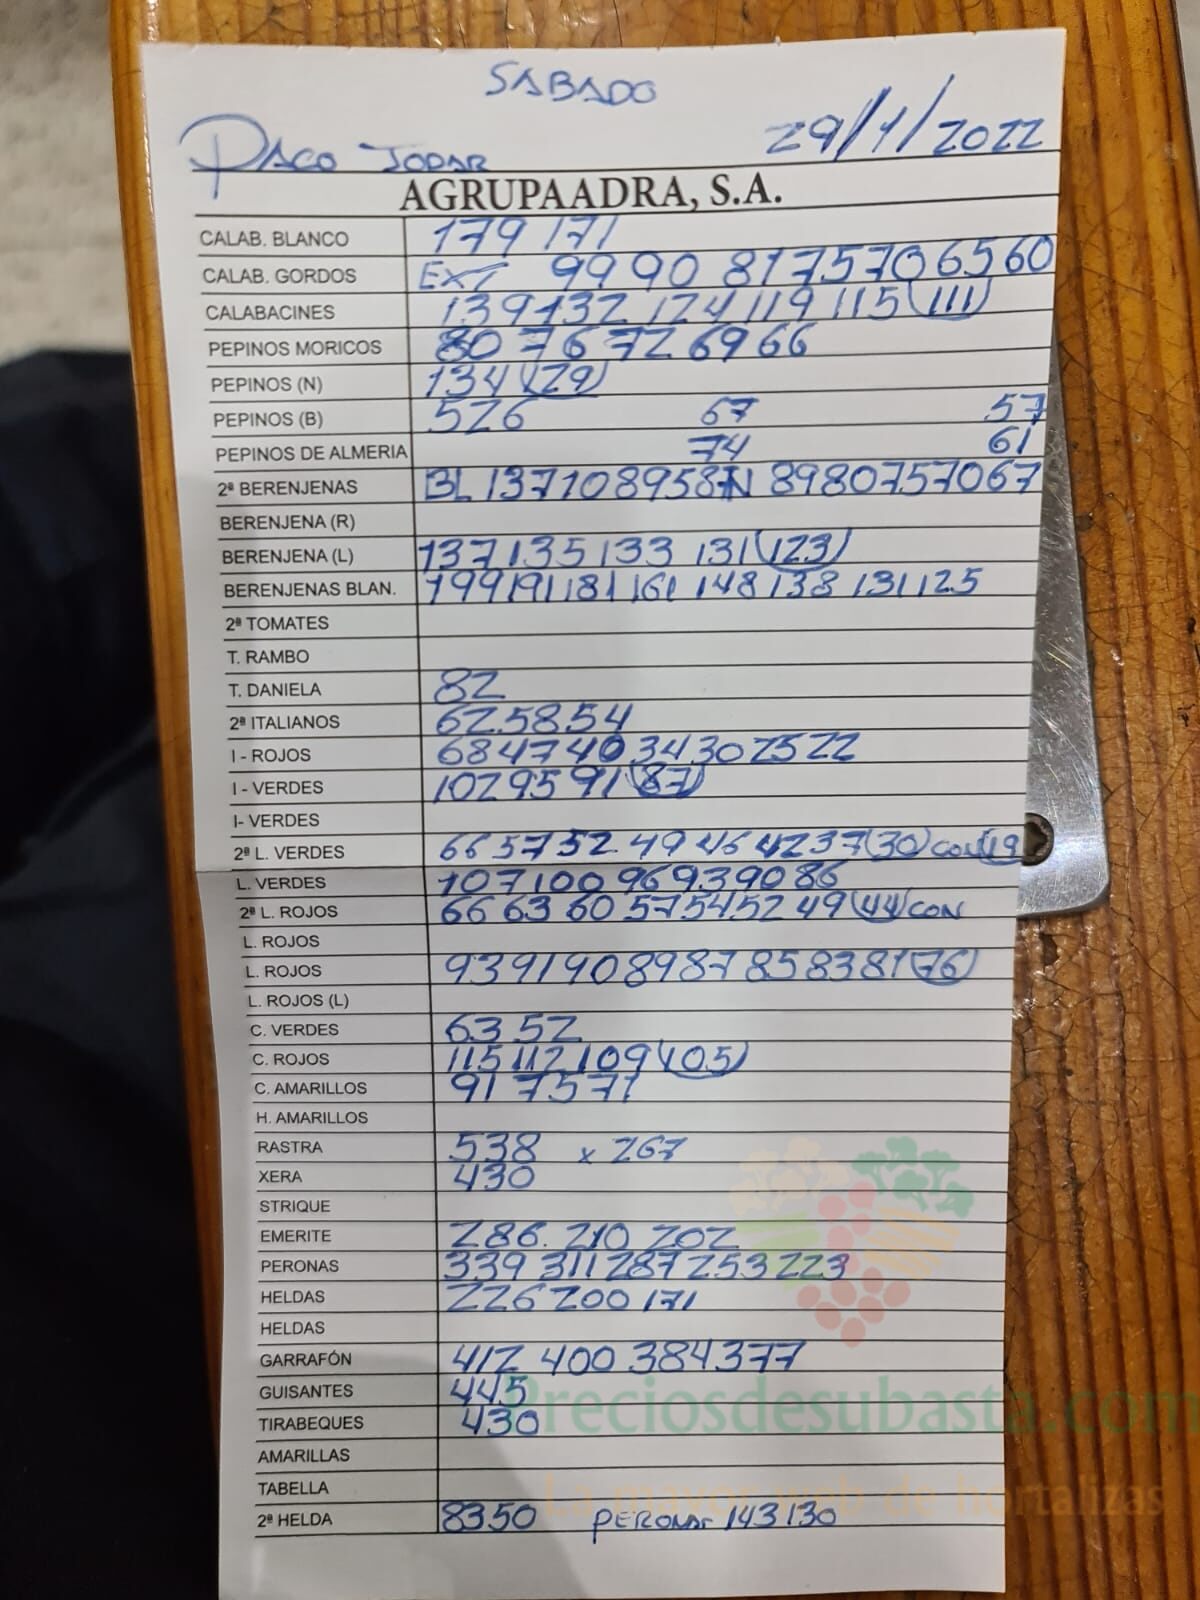 SABADO
PACO JODAR 29/1/2022
AGRUPAADRA, S.A.
CALAB. BLANCO 179 171
CALAB. GORDOS EXT 99 90 81 75 70 65 60
CALABACINES 139 132 124 119 115 (111)
PEPINOS MORICOS 80 76 72 69 66
PEPINOS (N) 134 (29)
PEPINOS (B) 526 67 57
PEPINOS DE ALMERIA 74 61
2ª BERENJENAS BL 137 108 95 87 N 89 80 75 70 67
BERENJENA (R)
BERENJENA (L) 137 135 133 131 (123)
BERENJENAS BLAN. 199 191 181 161 148 138 131 125
2ª TOMATES
T. RAMBO
T. DANIELA 82
2ª ITALIANOS 62 58 54
I - ROJOS 68 47 40 34 30 25 22
I - VERDES 102 95 91 (87)
I- VERDES
2ª L. VERDES 66 57 52 49 46 42 37 (30) CON (19
L. VERDES 107 100 96 93 90 86
2ª L. ROJOS 66 63 60 57 54 52 49 (44) CON
L. ROJOS
L. ROJOS 93 91 90 89 87 85 83 81 (76)
L. ROJOS (L)
C. VERDES 63 52
C. ROJOS 115 112 109 (105)
C. AMARILLOS 91 75 71
H. AMARILLOS
RASTRA 538 x 267
XERA 430
STRIQUE
EMERITE 286. 210 202
PERONAS 339 311 287 253 223
HELDAS 226 200 171
HELDAS
GARRAFÓN 412 400 384 377
GUISANTES 445
TIRABEQUES 430
Preciosdesubasta.com
AMARILLAS
TABELLA
La mayor web de hortalizas
2ª HELDA 83 50 PERONAS 143 130